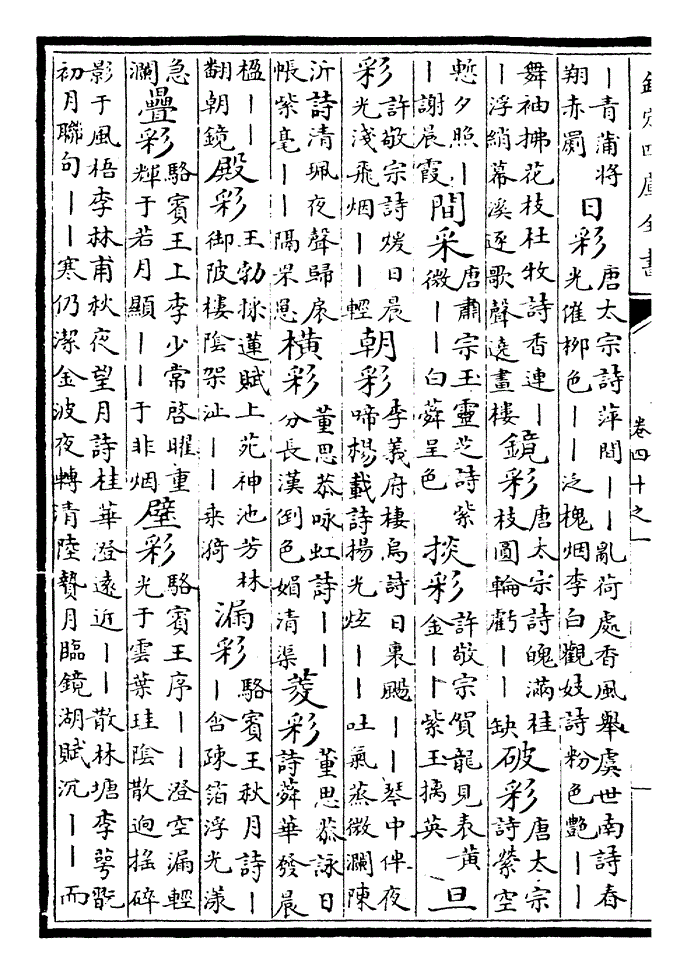 欽定四庫全書
卷四十之一
｜青蒲將
翔赤罽
日彩
唐太宗詩萍間｜｜亂荷處香風舉虞世南詩春
光催柳色｜｜泛槐烟李白觀妓詩粉色艷｜｜
舞袖拂花枝杜牧詩香連｜
｜浮綃幕溪逐歌聲遶畫樓
鏡彩
唐太宗詩魄滿桂
枝圓輪虧｜｜缺
破彩
唐太宗
詩縈空
慙夕照｜
｜謝晨霞
間采
唐肅宗玉靈芝詩紫
微｜｜白蕣呈色
掞彩
許敬宗賀龍見表黃
金｜｜紫玉摛英
旦
彩
許敬宗詩煖日晨
光淺飛烟｜｜輕
朝彩
李義府棲烏詩日裏颺｜｜琴中伴夜
啼楊載詩揚光炫｜｜吐氣蒸微瀾陳
沂詩清珮夜聲歸扆
帳紫亳｜｜隔罘罳
橫彩
董思恭咏虹詩｜｜
分長漢倒色媚清渠
菱彩
董思恭詠日
詩蕣華發晨
楹｜｜
翻朝鏡
殿彩
王勃採蓮賦上苑神池芳林
御陂樓陰架沚｜｜乘漪
漏彩
駱賓王秋月詩｜
｜含疎箔浮光漾
急
瀾
疊彩
駱賓王上李少常啓曜重
輝于若月顯｜｜于非烟
璧彩
駱賓王序｜｜澄空漏輕
光于雲葉珪陰散迥搖碎
影于風梧李林甫秋夜望月詩桂華澄遠近｜｜散林塘李蕚翫
初月聯句｜｜寒仍潔金波夜轉清陸贄月臨鏡湖賦沉｜｜而